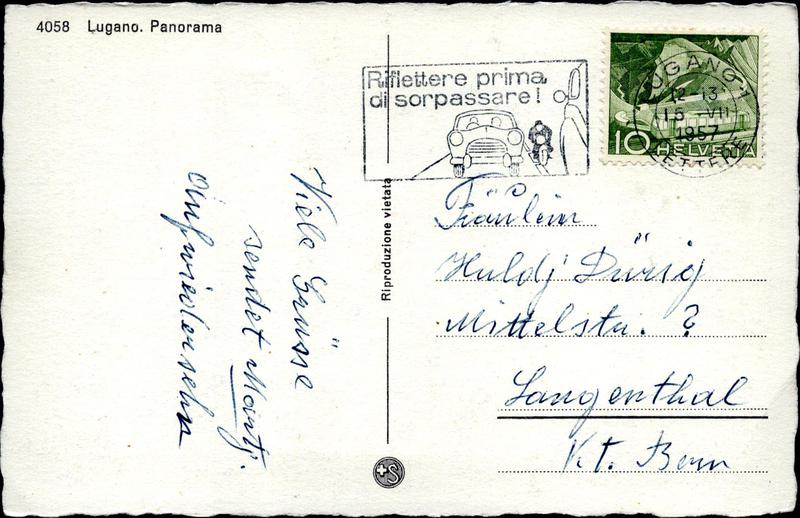 4058 Lugano. Panorama
Riflettere prima
di sorpassare!
LUGANO 1
12-13
15. VII
1957
LETTERE
10 HELVETIA
Viele Grüsse
sendet Martj.
Aufwiedersehn
Riproduzione vietata
Fräulein
Huldj Dürig
Mittelstr. ?
Langenthal
Kt. Bern
S